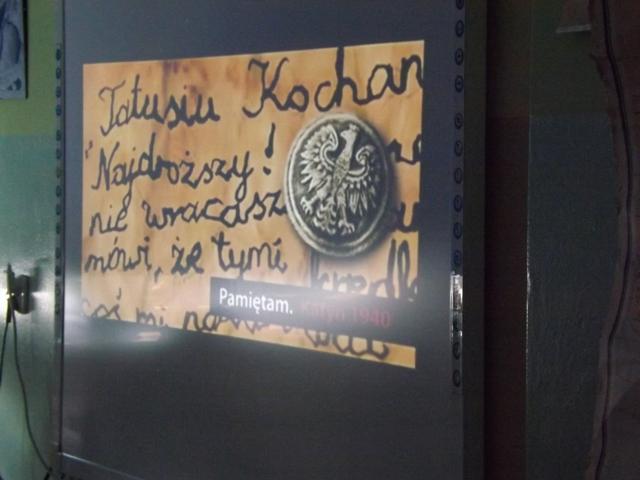 Tatusiu Kochan
Najdroższy!
nie wracasz
mówi, że tymi kredk
Pamiętam. Katyń 1940
coś mi